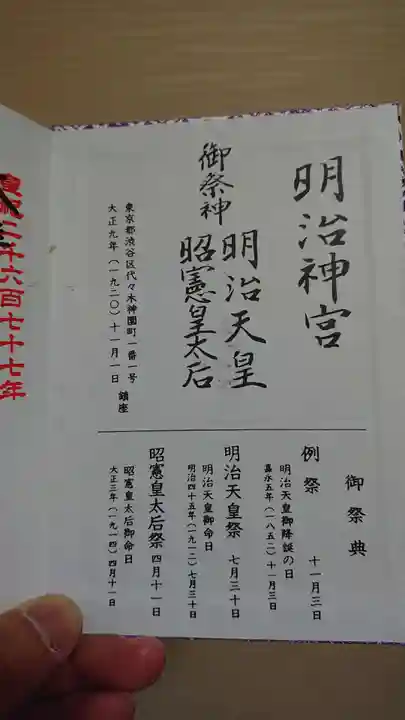 明治神宮
御祭神
明治天皇
昭憲皇太后
東京都渋谷区代々木神園町一番一号
大正九年(一九二〇)十一月一日 鎮座
御祭典
例祭 十一月三日
明治天皇御降誕の日
嘉永五年(一八五二)十一月三日
明治天皇祭 七月三十日
明治天皇御命日
明治四十五年(一九一二)七月三十日
昭憲皇太后祭 四月十一日
昭憲皇太后御命日
大正三年(一九一四)四月十一日
皇紀二千六百七十七年